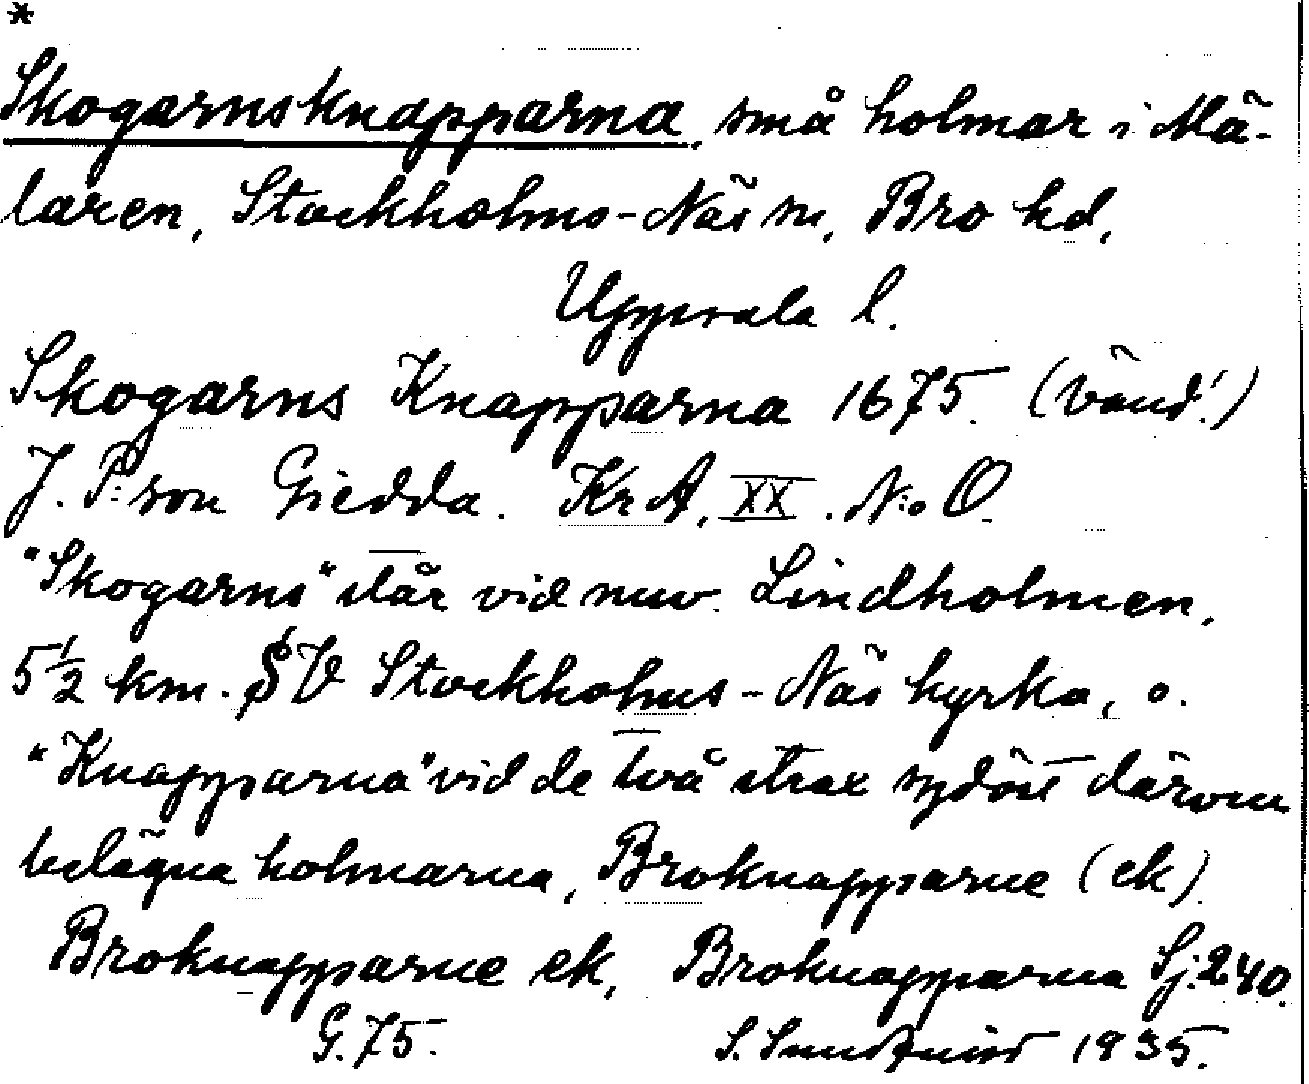 *
Skogarnsknapparna, små holmar i Mä-
laren, Stockholms-Näs sn, Bro hd,
Uppsala l.
Skogarns Knapparna 1675. (vänd!)
J. P:son Giedda. KrA, XX. N:o O.
"Skogarns" står vid nuv. Lindholmen,
5½ km. SV Stockholms-Näs kyrka, o.
"Knapparna" vid de två strax sydöst därom
belägna holmarna, Broknapparne (ek)
Broknapparne ek, Broknapparna Sj. 240.
G. 75. S. Sundquist 1935.